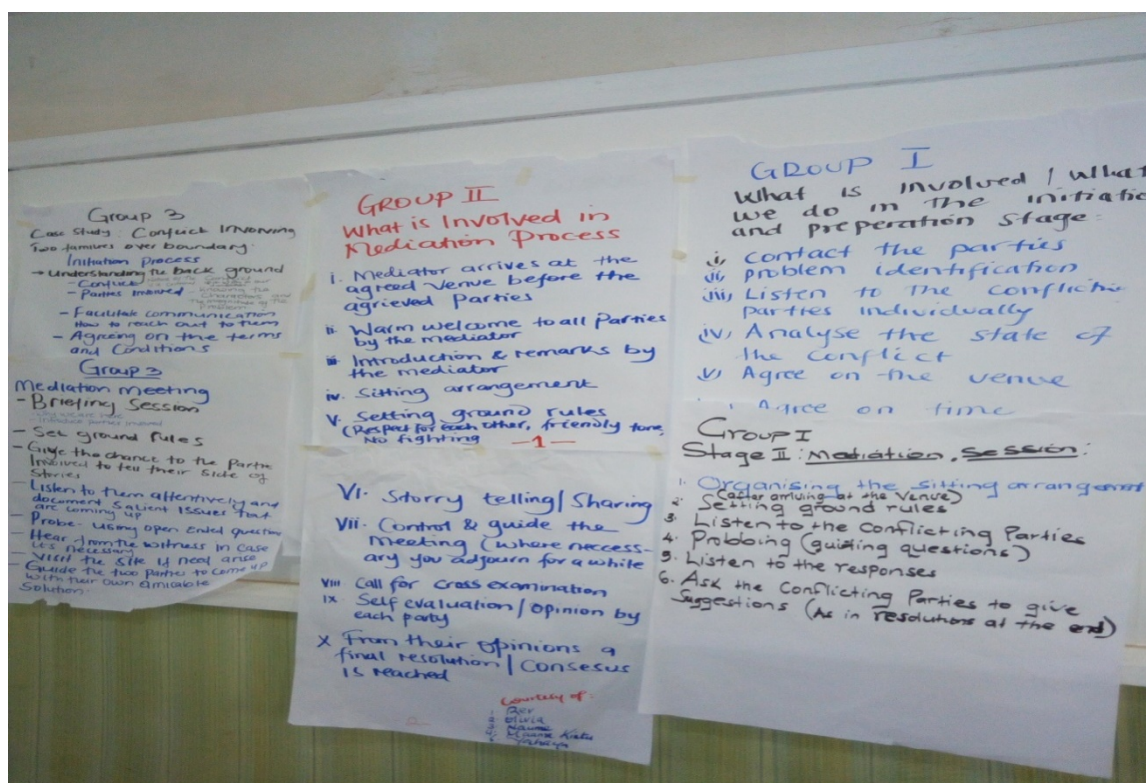 Group 3
Case Study: Conflict Involving
Two families over boundary.
Initiation Process
→ Understanding the back ground
- Conflict
- Parties Involved -
- Facilitate communication
How to reach out to them
- Agreeing on the terms
and Conditions
Group 3
Mediation meeting
- Briefing Session
- Set ground rules
- Give the chance to the Parties
Involved to tell their side of
Stories
- Listen to them attentively and
document Salient Issues that
are coming up
- Probe - using open Ended question
- Hear from the witness In case
its necessary
- Visit the site if need arise
- Guide the two parties to come up
with their own amicable
Solution.
GROUP II
What is Involved in
Mediation Process
i. Mediator arrives at the
agreed venue before the
agrieved Parties
ii. Warm welcome to all Parties
by the mediator
iii Introduction & remarks by
the mediator
iv. Sitting arrangement
V. Setting ground rules
(Respect for each other, friendly tone,
No fighting -1-
VI. Storry telling/Sharing
VII. Control & guide the
meeting (where neccess-
ary you adjourn for a while
VIII. Call for cross examination
IX Self evaluation/opinion by
each party
X From their opinions a
final resolution/Consesus
is reached
2
Courtesy of:
GROUP I
What is involved / what
we do in the initiatio
and preparation stage:
i, contact the parties
ii, problem identification
iii, Listen to the conflictin
parties individually
iv, Analyse the state of
the conflict
v, Agree on the venue
Agree on time
Group I
Stage II: Mediation Session:
1. Organising the sitting arrangement
(after arriving at the venue)
2 Setting ground rules
3 Listen to the Conflicting Parties
4. Probbing (guiding questions)
5. Listen to the responses
6. Ask the Conflicting Parties to give
Suggestions (As in resolutions at the end)